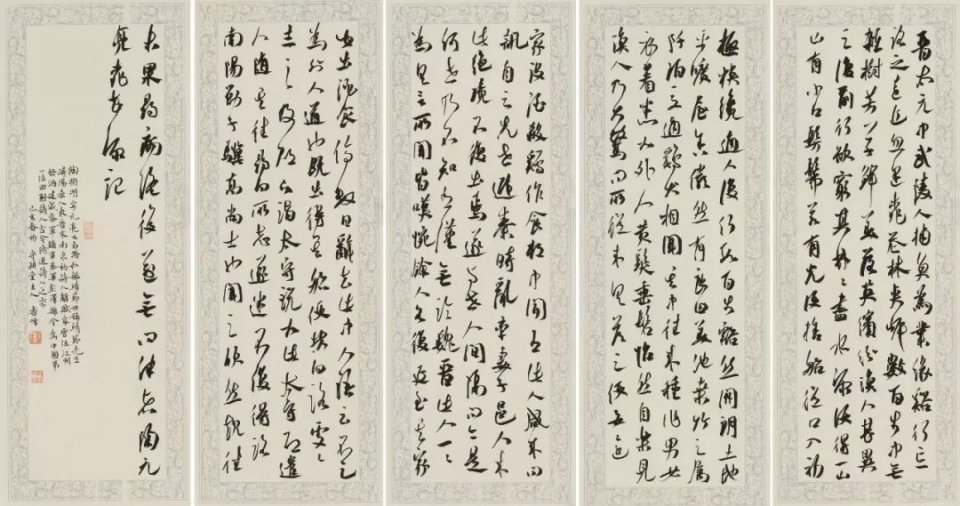 晉太元中武陵人捕魚為業緣谿行忘
路之遠近忽逢桃花林夾岸數百步中無
雜樹芳草鮮美落英繽紛漁人甚異
之復前行欲窮其林林盡水源便得一山
山有小口髣髴若有光便捨船從口入初
極狹纔通人復行數百步豁然開朗土地
平曠屋舍儼然有良田美池桑竹之屬
阡陌交通雞犬相聞其中往來種作男女
衣著悉如外人黃髮垂髫怡然自樂見
漁人乃大驚問所從來具答之便要還
家設酒殺雞作食村中聞有此人咸來問
訊自云先世避秦時亂率妻子邑人來
此絕境不復出焉遂與世人間隔問今是
何世乃不知有漢無論魏晉此人一一
為具言所聞皆嘆惋餘人各復延至其家
皆出酒食停數日辭去此中人語云不足
為外人道也既出得其船便扶向路處處
誌之及郡下詣太守說如此太守即遣
人隨其往尋向所誌遂迷不復得路
南陽劉子驥高尚士也聞之欣然規往
未果尋病終後遂無問津者陶元
亮桃花源記
陶淵明字元亮私謚靖節世稱靖節先生
潯陽柴桑人東晉末南宋初詩人辭賦家曾任江州
祭酒建威參軍鎮軍參軍彭澤縣令為中國第
一位田園詩人古今隱逸詩人之宗
己亥春初堂主人